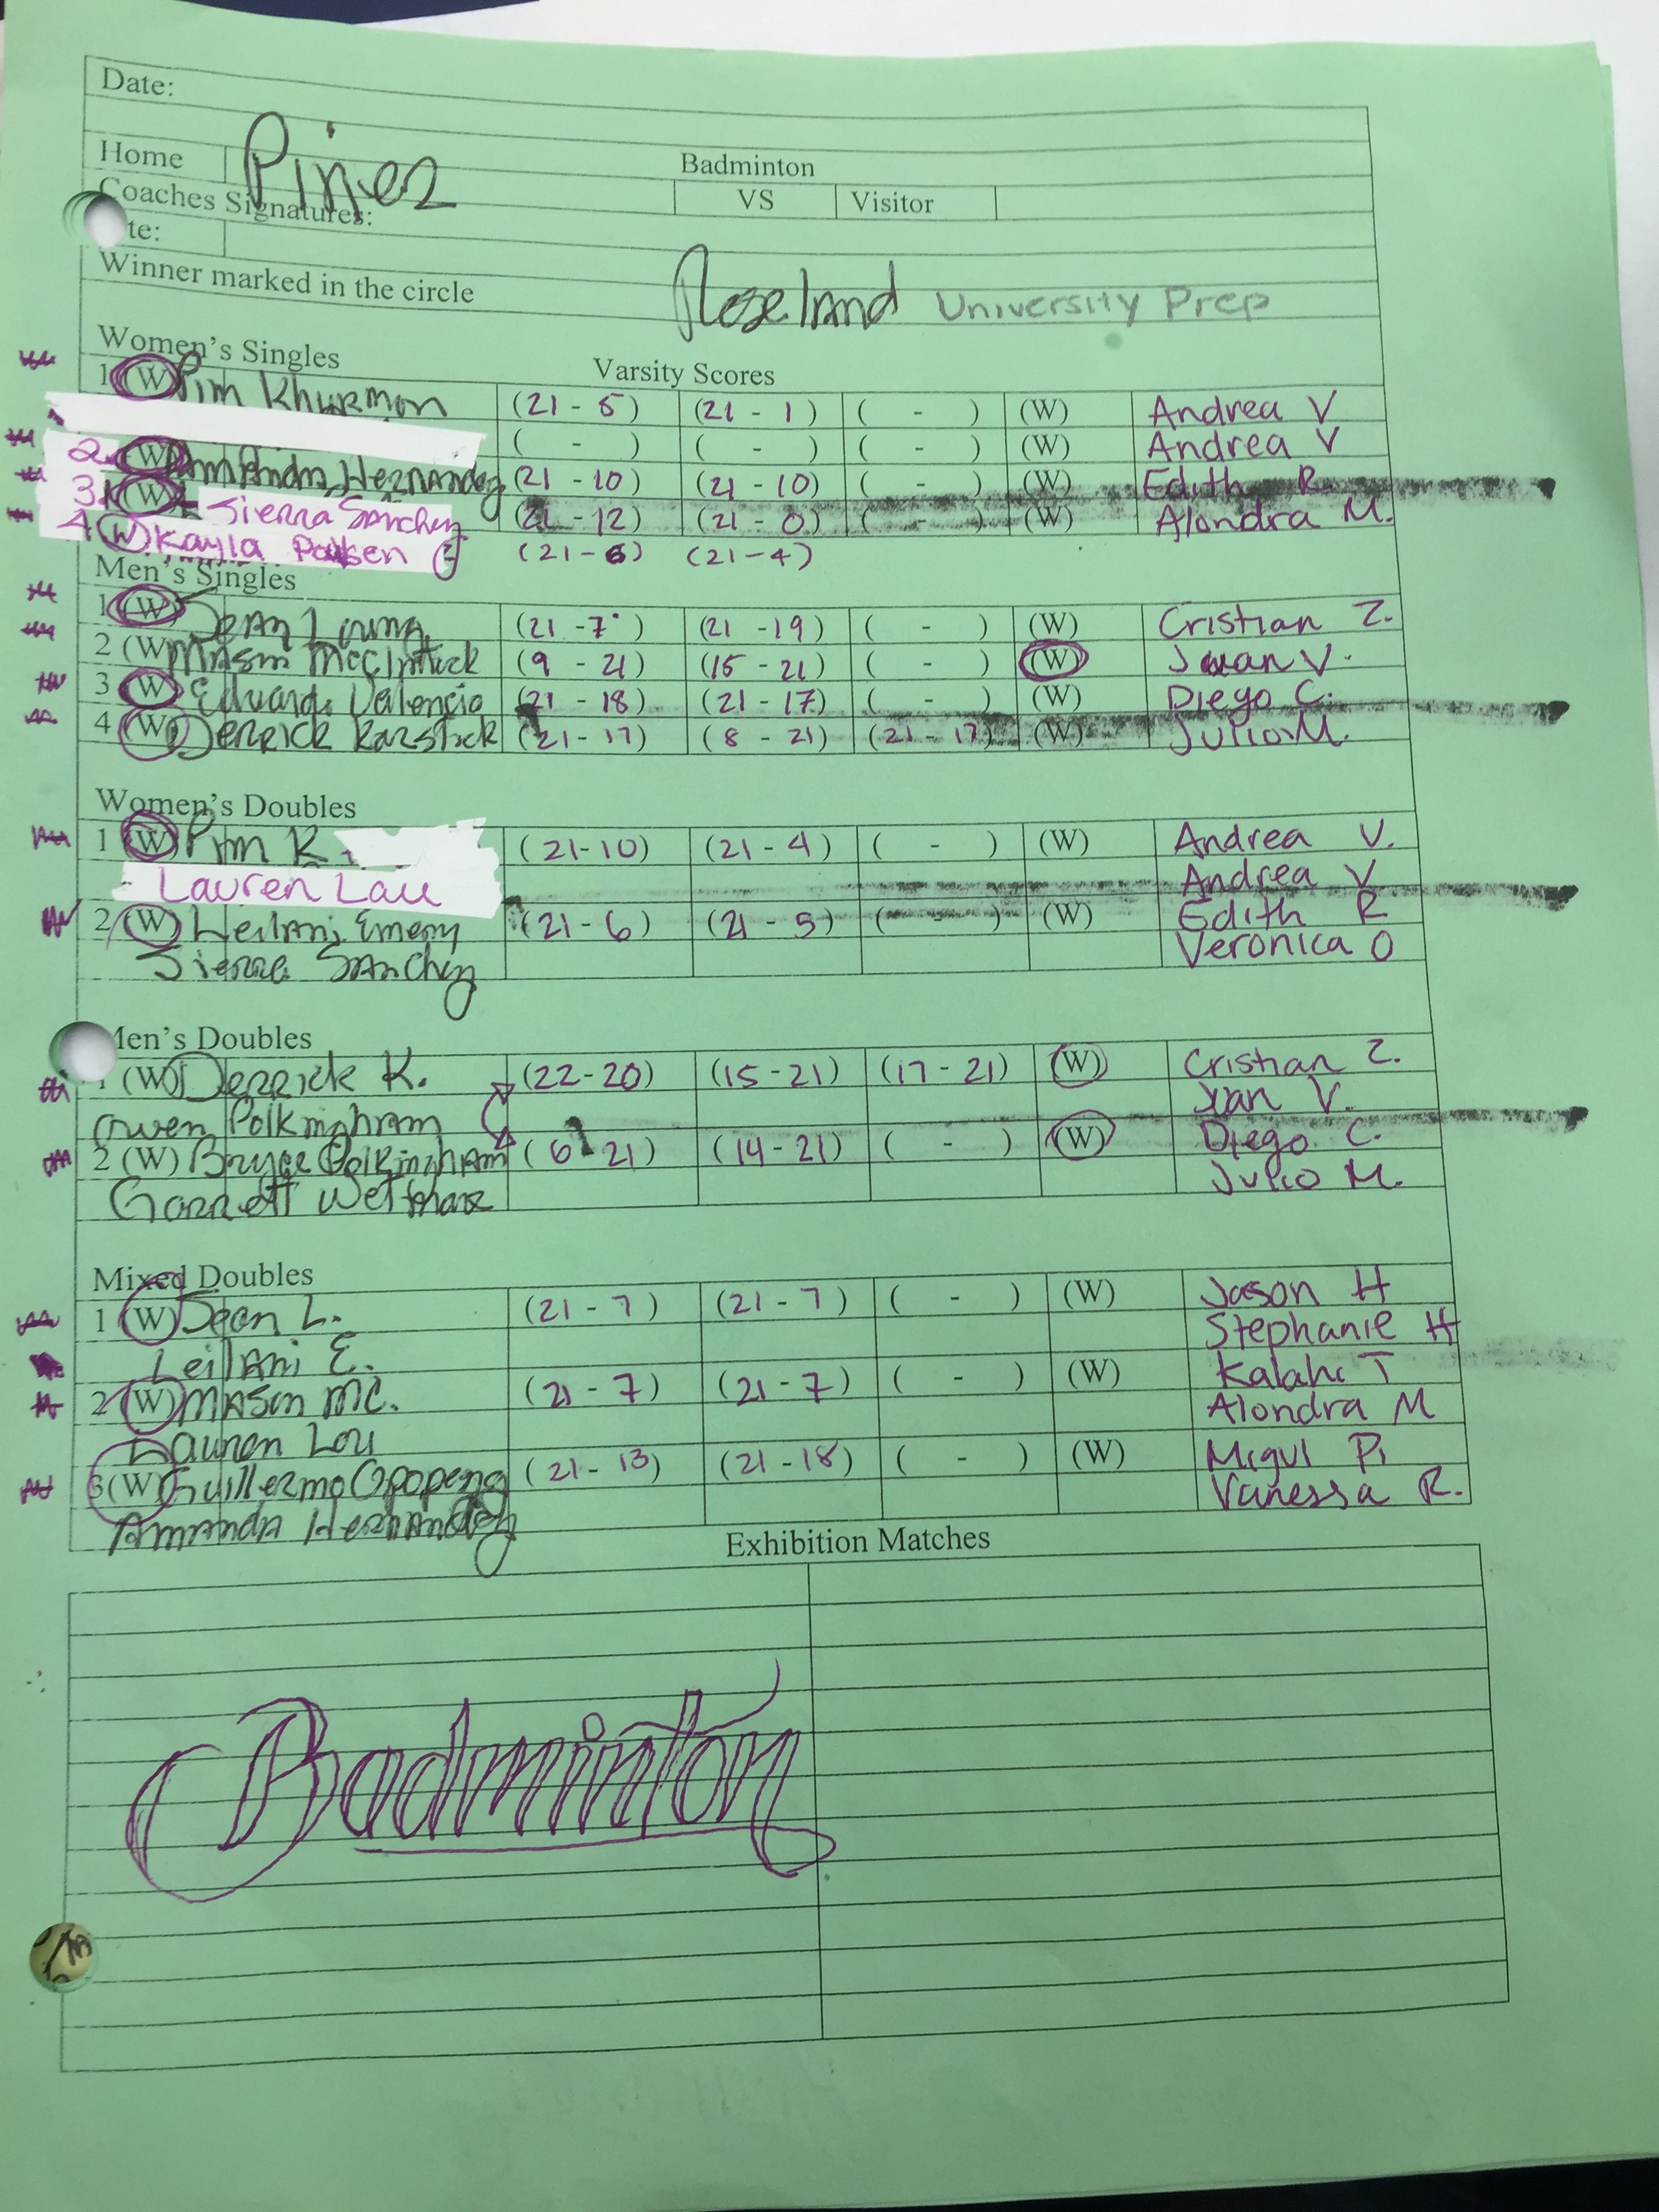 Date:
Home Piner Badminton
Coaches Signatures: VS Visitor
te:
Winner marked in the circle Roseland University Prep
Women's Singles Varsity Scores
1 (W) Pim Khurmon (21 - 5) (21 - 1) ( - ) (W) Andrea V
( - ) ( - ) ( - ) (W) Andrea V
2. (W) Amanda Hernandez (21 - 10) (21 - 10) ( - ) (W) Edith R.
3. (W) Sierra Sanchez (21 - 12) (21 - 0) ( - ) (W) Alondra M.
4 (W) Kayla (21 - 6) (21 - 4)
Men's Singles
1 (W) Sean (21 - 7) (21 - 19) ( - ) (W) Cristian Z.
2 (W) Mason McClintick (9 - 21) (15 - 21) ( - ) (W) Juan V.
3 (W) Eduardo Valencia (21 - 18) (21 - 17) ( - ) (W) Diego C.
4 (W) Derrick Karstick (21 - 17) (8 - 21) (21 - 17) (W) Julio M.
Women's Doubles
1 (W) Pim K. (21-10) (21 - 4) ( - ) (W) Andrea V.
Lauren Lau Andrea V
2 (W) Leilani Emery (21 - 6) (21 - 5) ( - ) (W) Edith R
Sierra Sanchez Veronica O
Men's Doubles
1 (W) Derrick K. (22-20) (15 - 21) (17 - 21) (W) Cristian Z.
Owen Polkingham Juan V.
2 (W) Bryce Polkingham (6 - 21) (14 - 21) ( - ) (W) Diego C.
Garrett Julio M.
Mixed Doubles
1 (W) Sean L. (21 - 7) (21 - 7) ( - ) (W) Jason H
Leilani E. Stephanie H
2 (W) Mason Mc. (21 - 7) (21 - 7) ( - ) (W) Kalahi T
Lauren Lau Alondra M
3 (W) Guillermo (21 - 13) (21 - 18) ( - ) (W) Migul P.
Amanda Hernandez Vanessa R.
Exhibition Matches
Badminton